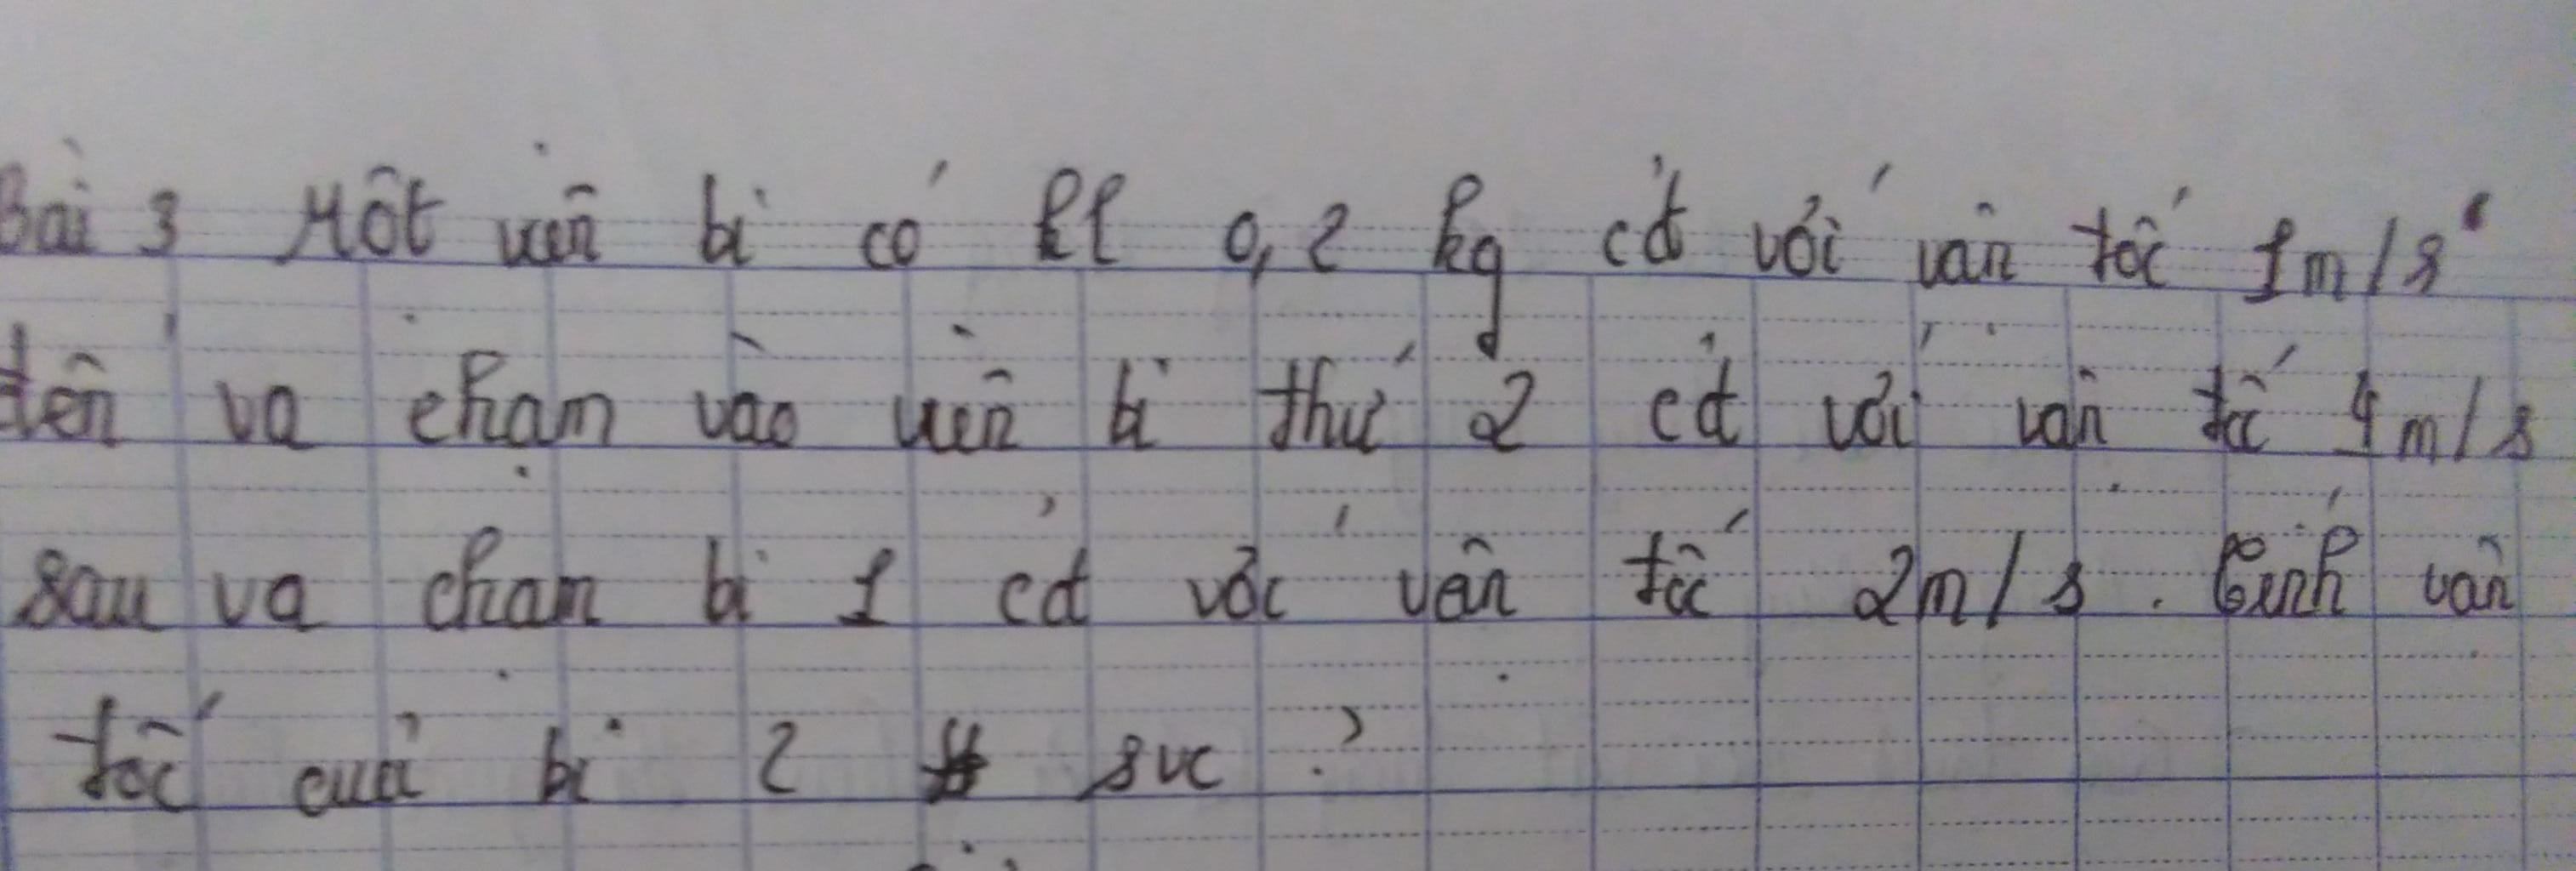 Bài 3 Một viên bi có kl 0,2 kg cđ với vận tốc 1m/s
đến va chạm vào viên bi thứ 2 cđ với vận tốc 4m/s
sau va chạm bi 1 cđ với vận tốc 2m/s. Tính vận
tốc của bi 2 svc ?